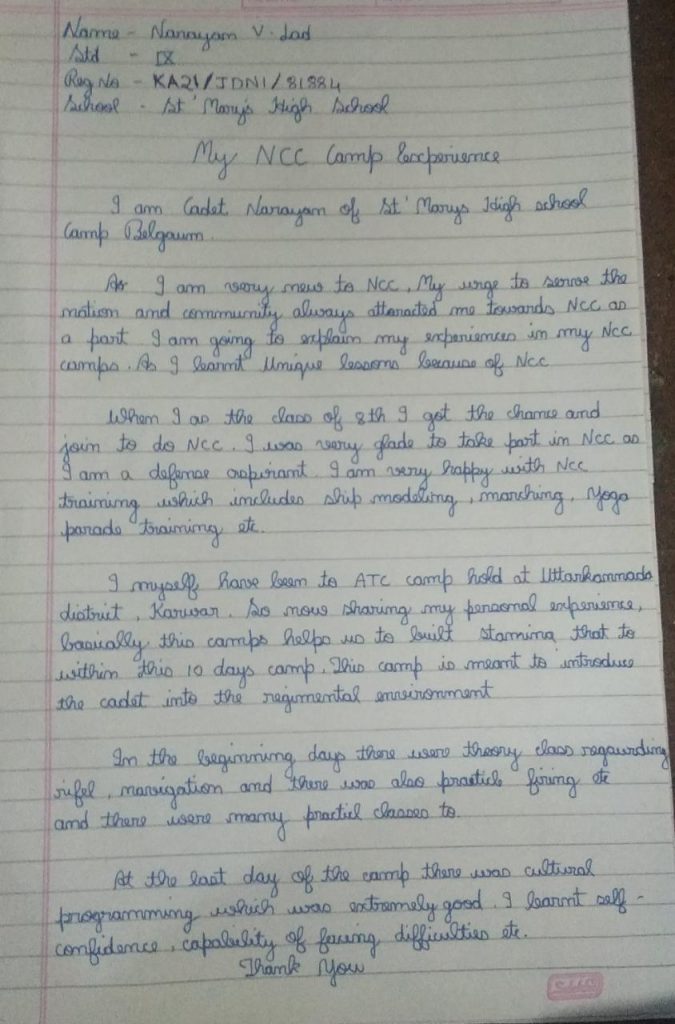 Name - Narayam V. Lad
Std - IX
Reg No - KA21/JDN1/81884
School - St' Mary's High School
My NCC Camp Experience
I am Cadet Narayam of St' Marys High school
Camp Belgaum.
As I am very new to NCC, My urge to serve the
nation and community always attaracted me towards NCC as
a part I am going to explain my experiences in my NCC
camps. As I learnt Unique lessons because of NCC
When I as the class of 8th I got the chance and
join to do NCC. I was very glade to take part in NCC as
I am a defense aspirant. I am very happy with NCC
training which includes ship modeling, marching, Yoga
parade training etc.
I myself have been to ATC camp hold at Uttarkannada
district, Karwar. So now sharing my personal experience,
basically this camps helps us to built stamina that to
within this 10 days camp. This camp is meant to introduce
the cadet into the regimental environment
In the beginning days there were theory class regaurding
rifel, navigation and there was also practicle firing etc
and there were many practicl classes to.
At the last day of the camp there was cultural
programming which was extremely good. I learnt self -
confidence, capability of facing difficulties etc.
Thank You